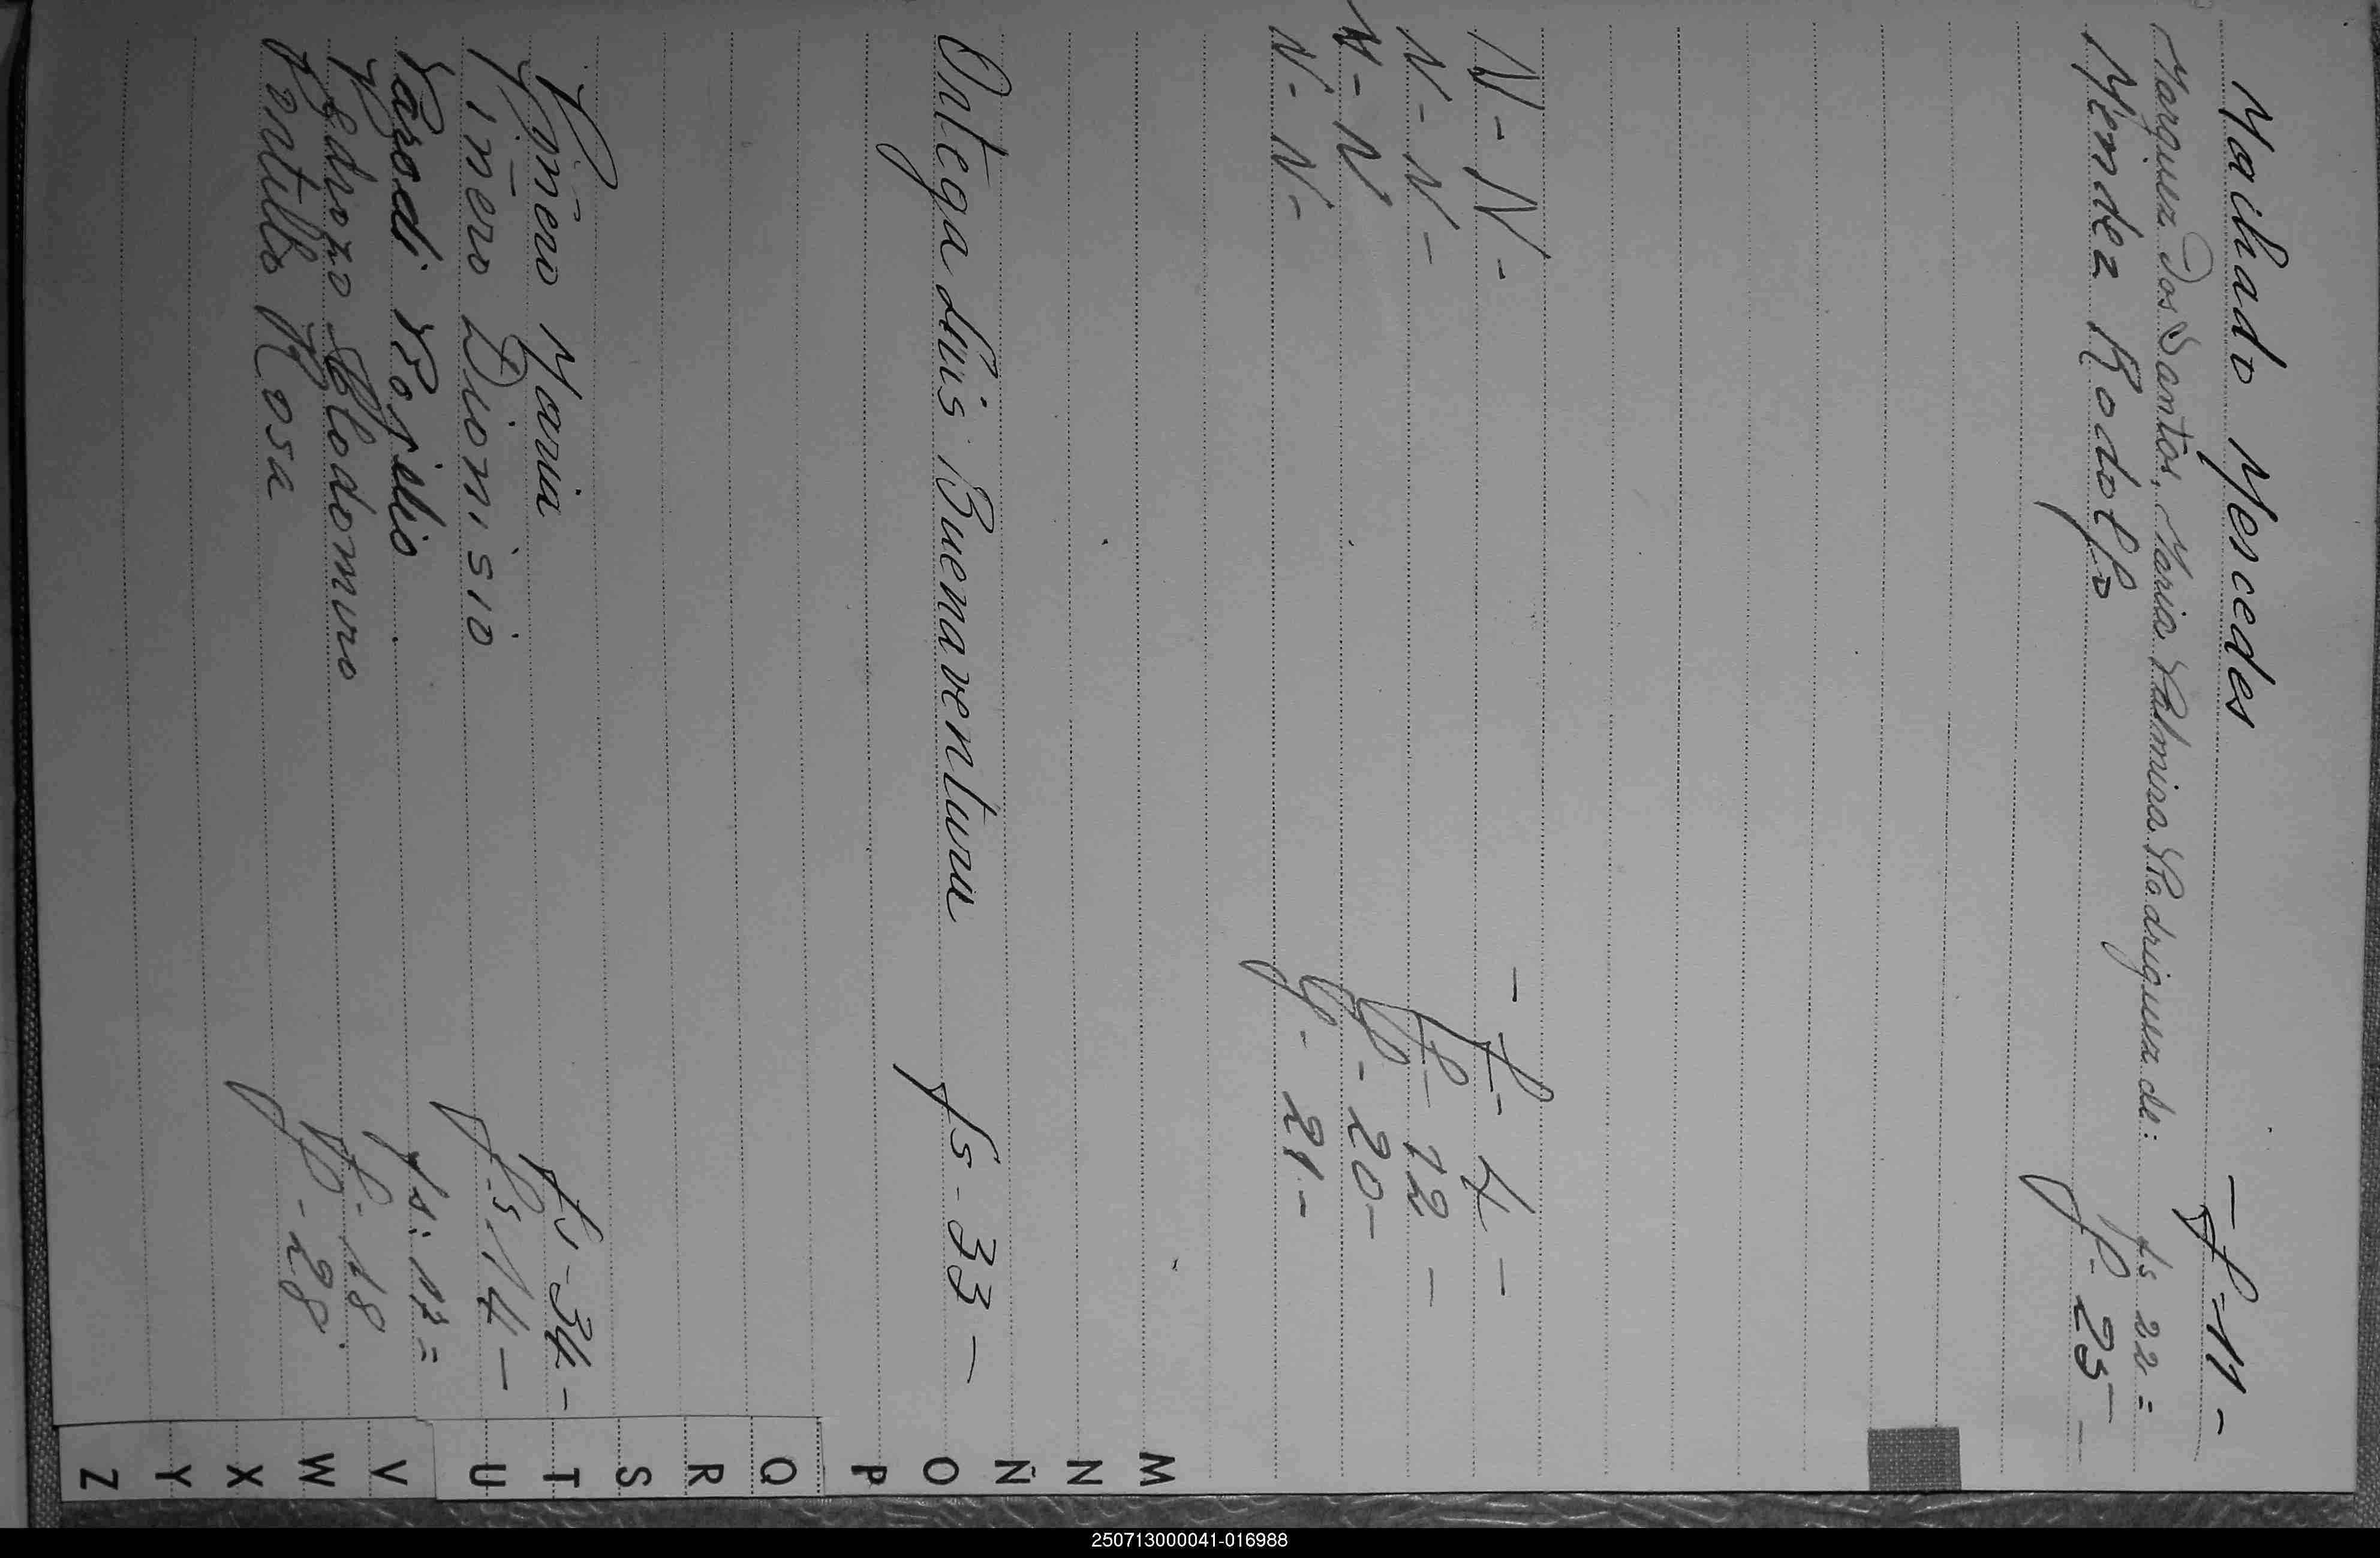 Machado Mercedes - f-11-
Marquez Dos Santos, Maria Palmira Rodriguez de: fs 22=
Mendez Rodolfo f- 25-
N-N- - f- 4-
N-N- f- 12-
N-N f- 20-
N-N- f- 21-
Ortega Luis Buenaventura fs-33-
Piñero Maria fs-34-
Piñero Dionisio fs 14-
Parodi Rogelio fs: 17=
Pedrozo Clodomiro f- 18
Pontillo Rosa f-28
M
N
Ñ
O
P
Q
R
S
T
U
V
W
X
Y
Z
250713000041-016988